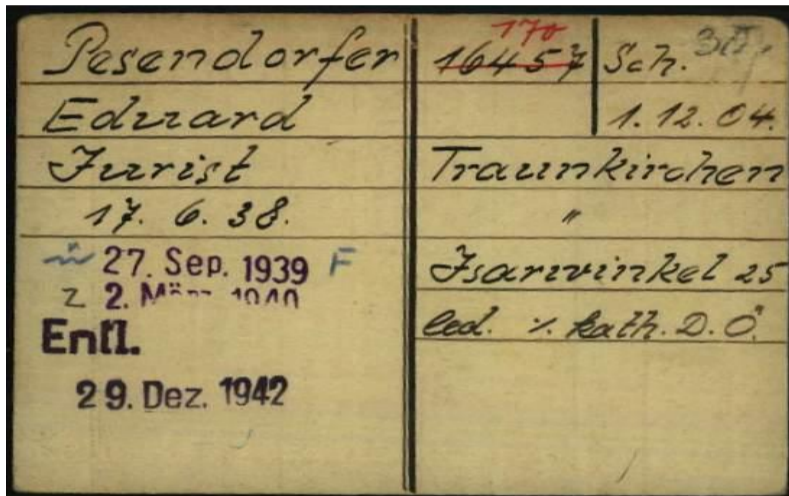 Pesendorfer
Eduard
Jurist
17. 6. 38.
ü 27. Sep. 1939 F
Z 2. März 1940
Entl.
29. Dez. 1942
170
16457 Sch.
1.12.04.
Traunkirchen
"
Isarwinkel 25
led. %. kath. D. Ö.